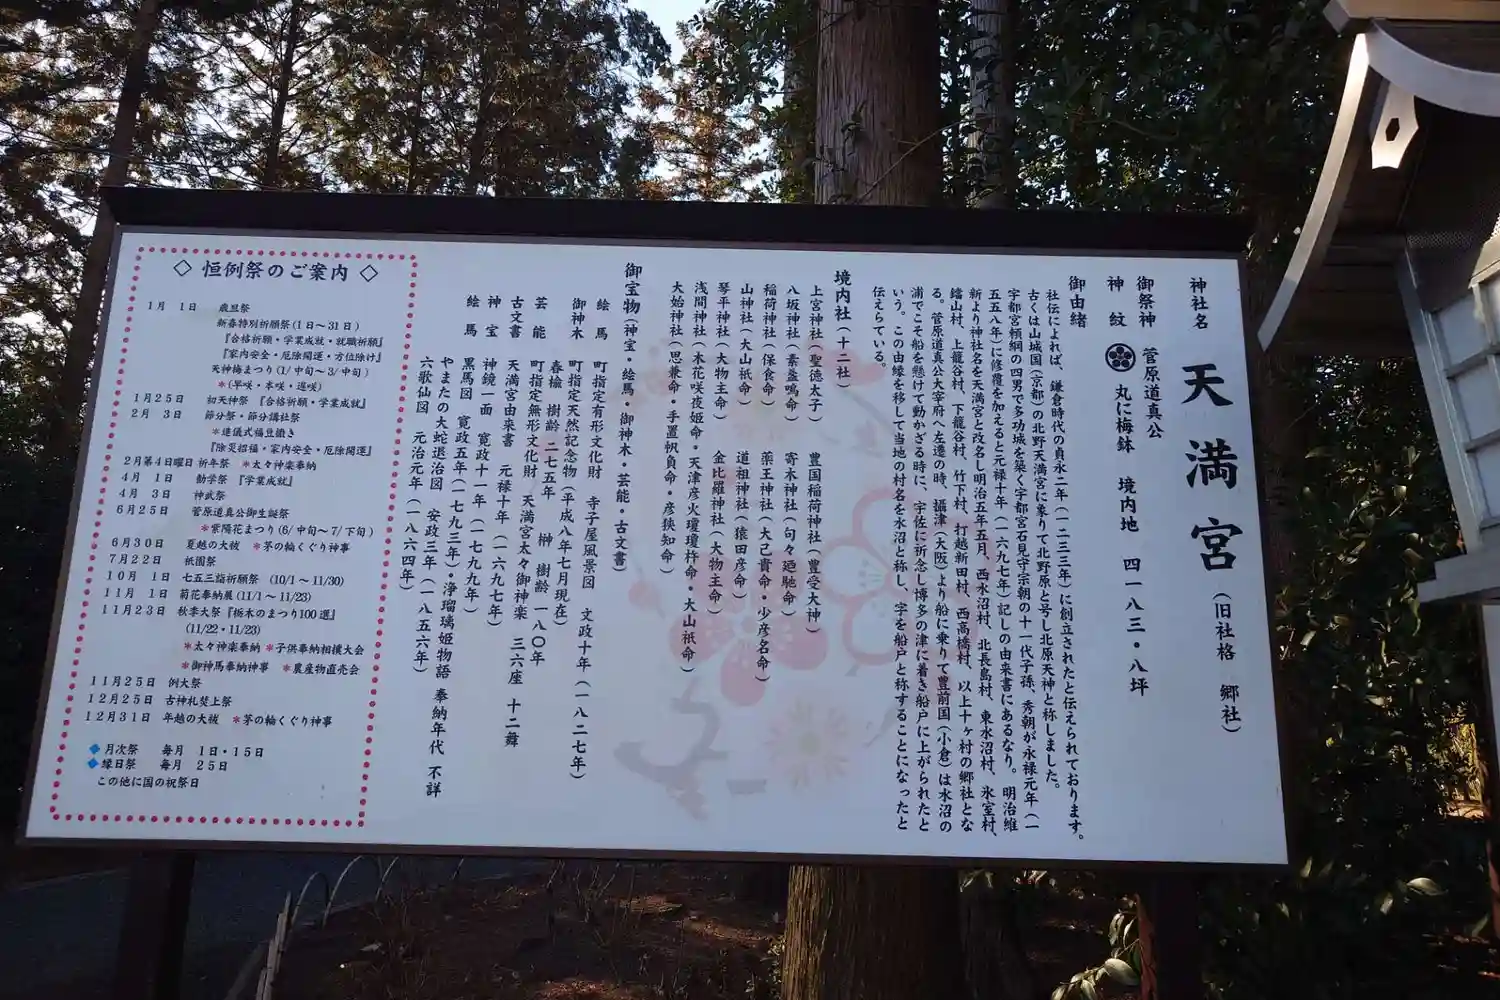 神社名 天満宮 (旧社格 郷社)
御祭神 菅原道真公
神紋 丸に梅鉢 境内地 四一八三・八坪
御由緒
社伝によれば、鎌倉時代の貞永二年(一二三三年)に創立されたと伝えられております。
古くは山城国(京都)の北野天満宮に象りて北野原と号し北原天神と称しました。
宇都宮頼綱の四男で多功城を築く宇都宮石見守宗朝の十一代子孫、秀朝が永禄元年(一
五五八年)に修覆を加えると元禄十年(一六九七年)記しの由来書にあるなり。明治維
新より神社名を天満宮と改名し明治五年五月、西水沼村、北長島村、東水沼村、氷室村、
鐺山村、上籠谷村、下籠谷村、竹下村、打越新田村、西高橋村、以上十ヶ村の郷社とな
る。菅原道真公大宰府へ左遷の時、攝津(大阪)より船に乗りて豊前国(小倉)は水沼の
浦でこそ船を懸けて動かざる時に、宇佐に祈念し博多の津に着き船戸に上がられたと
いう。この由縁を移して当地の村名を水沼と称し、字を船戸と称することになったと
伝えらている。
境内社(十二社)
上宮神社(聖徳太子) 豊国稲荷神社(豊受大神)
八坂神社(素盞嗚命) 寄木神社(句々廼馳命)
稲荷神社(保食命) 薬王神社(大己貴命・少彦名命)
山神社(大山祇命) 道祖神社(猿田彦命)
琴平神社(大物主命) 金比羅神社(大物主命)
浅間神社(木花咲夜姫命・天津彦火瓊瓊杵命・大山祇命)
大始神社(思兼命・手置帆負命・彦狭知命)
御宝物(神宝・絵馬・御神木・芸能・古文書)
絵馬 町指定有形文化財 寺子屋風景図 文政十年(一八二七年)
御神木 町指定天然記念物(平成八年七月現在)
春楡 樹齢二七五年 榊 樹齢一八〇年
芸能 町指定無形文化財 天満宮太々御神楽 三六座 十二舞
古文書 天満宮由来書 元禄十年(一六九七年)
神宝 神鏡一面 寛政十一年(一七九九年)
絵馬 黒馬図 寛政五年(一七九三年)・浄瑠璃姫物語 奉納年代 不詳
やまたの大蛇退治図 安政三年(一八五六年)
六歌仙図 元治元年(一八六四年)
◇ 恒例祭のご案内 ◇
1月 1日 歳旦祭
新春特別祈願祭(1日〜31日)
『合格祈願・学業成就・就職祈願』
『家内安全・厄除開運・方位除け』
天神梅まつり(1/中旬〜3/中旬)
*(早咲・本咲・遅咲)
1月25日 初天神祭 『合格祈願・学業成就』
2月 3日 節分祭・節分講社祭
*追儺式福豆撤き
『除災招福・家内安全・厄除開運』
2月第4日曜日 祈年祭 *太々神楽奉納
4月 1日 勧学祭 『学業成就』
4月 3日 神武祭
6月25日 菅原道真公御生誕祭
*紫陽花まつり(6/中旬〜7/下旬)
6月30日 夏越の大祓 *茅の輪くぐり神事
7月22日 祇園祭
10月 1日 七五三詣祈願祭 (10/1〜11/30)
11月 1日 菊花奉納展(11/1〜11/23)
11月23日 秋季大祭『栃木のまつり100選』
(11/22・11/23)
*太々神楽奉納 *子供奉納相撲大会
*御神馬奉納神事 *農産物直売会
11月25日 例大祭
12月25日 古神札焚上祭
12月31日 年越の大祓 *茅の輪くぐり神事
◆月次祭 毎月 1日・15日
◆縁日祭 毎月 25日
この他に国の祝祭日